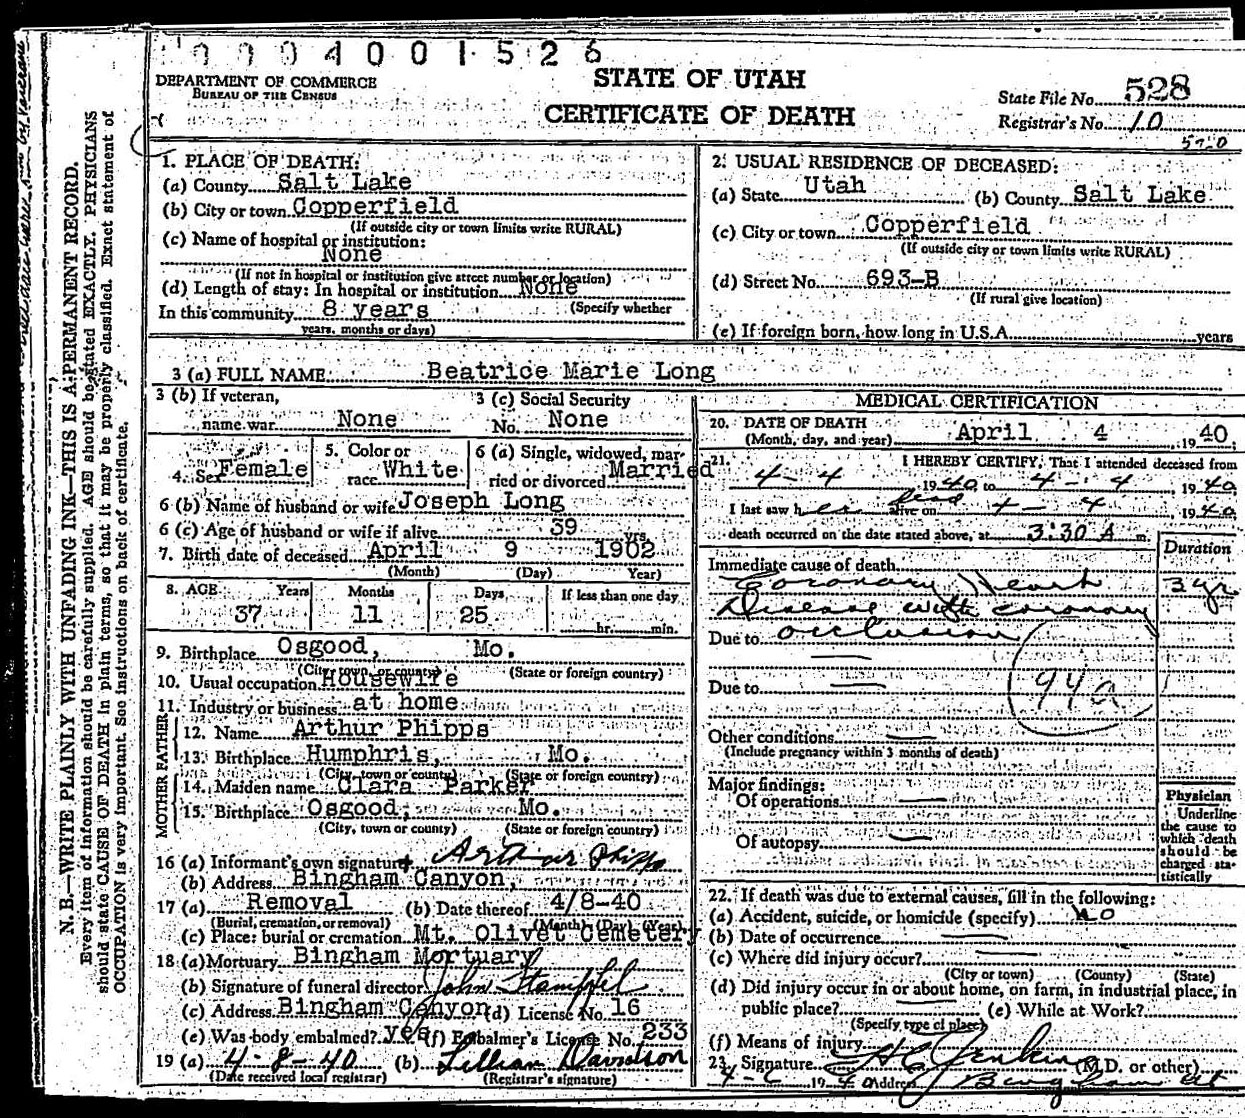 0004001526
DEPARTMENT OF COMMERCE
BUREAU OF THE CENSUS
STATE OF UTAH
CERTIFICATE OF DEATH
State File No. 528
Registrar's No. 10
N. B.—WRITE PLAINLY WITH UNFADING INK—THIS IS A PERMANENT RECORD.
Every item of information should be carefully supplied. AGE should be stated EXACTLY. PHYSICIANS
should state CAUSE OF DEATH in plain terms, so that it may be properly classified. Exact statement of
OCCUPATION is very important. See instructions on back of certificate.
1. PLACE OF DEATH:
(a) County Salt Lake
(b) City or town Copperfield
(If outside city or town limits write RURAL)
(c) Name of hospital or institution:
None
(If not in hospital or institution give street number or location)
(d) Length of stay: In hospital or institution None
(Specify whether
In this community 8 years
years, months or days)
2. USUAL RESIDENCE OF DECEASED:
(a) State Utah (b) County Salt Lake
(c) City or town Copperfield
(If outside city or town limits write RURAL)
(d) Street No. 693-B
(If rural give location)
(e) If foreign born, how long in U.S.A. years
3 (a) FULL NAME Beatrice Marie Long
3 (b) If veteran,
name war None
3 (c) Social Security
No. None
4. Sex Female
5. Color or
race White
6 (a) Single, widowed, mar-
ried or divorced Married
6 (b) Name of husband or wife Joseph Long
6 (c) Age of husband or wife if alive 39 yrs.
7. Birth date of deceased April 9 1902
(Month) (Day) Year)
8. AGE Years Months Days If less than one day
37 11 25 hr. min.
9. Birthplace Osgood, Mo.
(City, town, or county) (State or foreign country)
10. Usual occupation Housewife
11. Industry or business at home
FATHER
12. Name Arthur Phipps
13. Birthplace Humphris, Mo.
(City, town or county) (State or foreign country)
MOTHER
14. Maiden name Clara Parker
15. Birthplace Osgood, Mo.
(City, town or county) (State or foreign country)
16 (a) Informant's own signature Arthur Phipps
(b) Address Bingham Canyon,
17 (a) Removal (b) Date thereof 4/8-40
(Burial, cremation, or removal) (Month) (Day) (Year)
(c) Place: burial or cremation Mt. Olivet Cemetery
18 (a) Mortuary Bingham Mortuary
(b) Signature of funeral director John Stampfel
(c) Address Bingham Canyon (d) License No. 16
(e) Was body embalmed? yes (f) Embalmer's License No. 233
19 (a) 4-8-40 (b) Lillian Davidson
(Date received local registrar) (Registrar's signature)
MEDICAL CERTIFICATION
20. DATE OF DEATH
(Month, day, and year) April 4 1940
21. I HEREBY CERTIFY, That I attended deceased from
4-4 1940, to 4-4 1940
I last saw her alive on dead 4-4 1940
death occurred on the date stated above, at 3:30 A m.
Immediate cause of death Duration
Coronary Heart 3 yr
Disease with coronary
Due to occlusion
Due to
94a
Other conditions
(Include pregnancy within 3 months of death)
Major findings:
Of operations
Of autopsy
Physician
Underline
the cause to
which death
should be
charged sta-
tistically
22. If death was due to external causes, fill in the following:
(a) Accident, suicide, or homicide (specify) No
(b) Date of occurrence
(c) Where did injury occur?
(City or town) (County) (State)
(d) Did injury occur in or about home, on farm, in industrial place, in
public place? (e) While at Work?
(Specify type of place)
(f) Means of injury
23. Signature H C Jenkins (M.D. or other)
1940 Address Bingham Ut